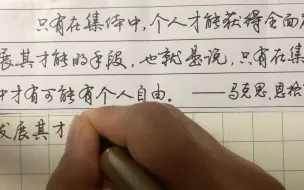 只有在集体中,个人才能获得全面
展其才能的手段,也就是说,只有在集
中才有可能有个人自由。——马克思,恩格
发展其才